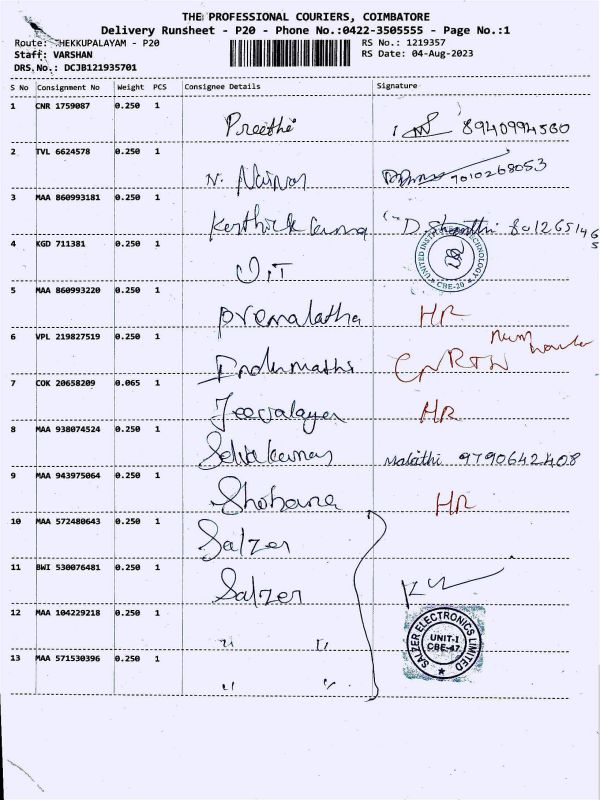 THE PROFESSIONAL COURIERS, COIMBATORE
Delivery Runsheet - P20 - Phone No.:0422-3505555 - Page No.:1
Route: THEKKUPALAYAM - P20 RS No.: 1219357
Staff: VARSHAN RS Date: 04-Aug-2023
DRS No.: DCJB121935701
S No Consignment No Weight PCS Consignee Details Signature
1 CNR 1759087 0.250 1 Preethi 8940994560
2 TVL 6624578 0.250 1 N. Nainar 9010268053
3 MAA 860993181 0.250 1 D. Shanthi 8012651465
4 KGD 711381 0.250 1 UIT UNITED INSTITUTE OF TECHNOLOGY CBE-20
5 MAA 860993220 0.250 1 Premalatha HR
6 VPL 219827519 0.250 1 Indumathi
7 COK 20658209 0.065 1 Jeevalayer HR
8 MAA 938074524 0.250 1 Selvakumar Malathi 9790642408
9 MAA 943975064 0.250 1 Shobana HR
10 MAA 572480643 0.250 1 Salzer
11 BWI 530076481 0.250 1 Salzer
12 MAA 104229218 0.250 1 " "
13 MAA 571530396 0.250 1 " "
SALZER ELECTRONICS LIMITED
UNIT-I
CBE-47